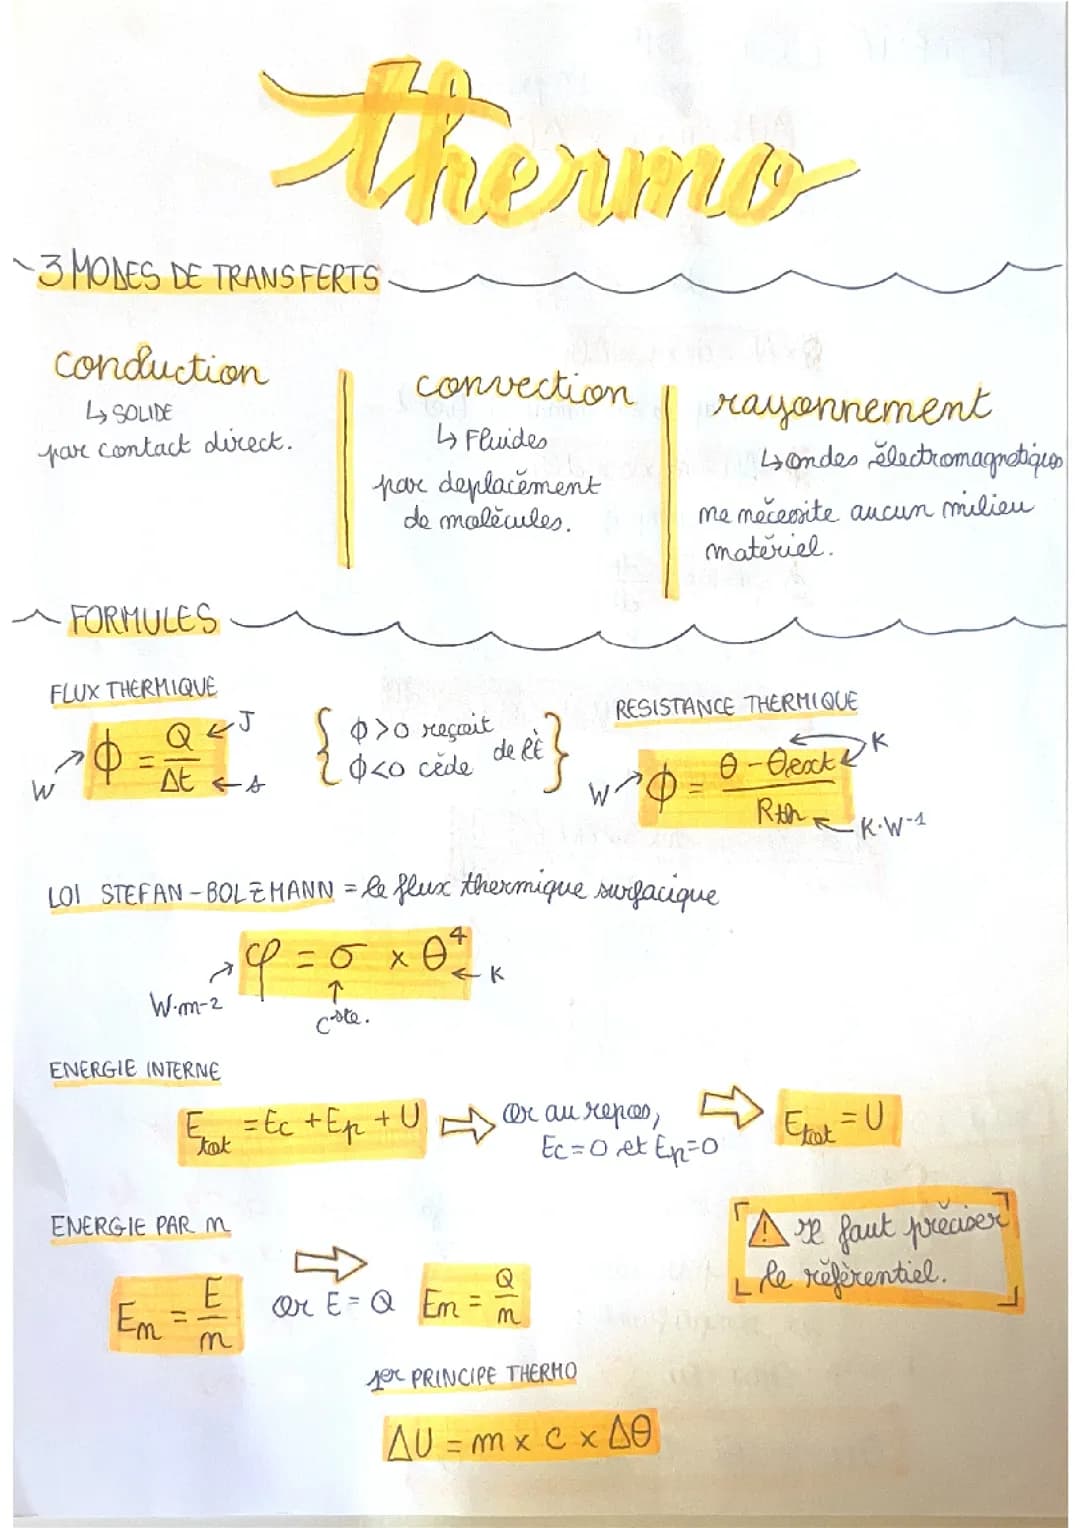 thermo
3 MODES DE TRANSFERTS
conduction
↳ SOLIDE
par contact direct.
convection
↳ Fluides
par deplacément
de molécules.
rayonnement
↳ ondes électromagnétiques
ne nécessite aucun milieu
matériel.
FORMULES
FLUX THERMIQUE
W ϕ = Q/Δt J s
{ ϕ>0 reçoit
ϕ<0 cède
de l'É }
RESISTANCE THERMIQUE
W ϕ = (θ - θext)/Rth K K·W-1
LOI STEFAN-BOLZMANN = le flux thermique surfacique
φ = σ × θ⁴ K
W·m-2
cste.
ENERGIE INTERNE
Etot = Ec + Ep + U ⇨ Or au repos,
Ec=0 et Ep=0
⇨ Etot = U
⚠ Il faut préciser
le référentiel.
ENERGIE PAR m
Em = E/m
⇨
Or E = Q
Em = Q/m
1er PRINCIPE THERMO
ΔU = m × c × Δθ